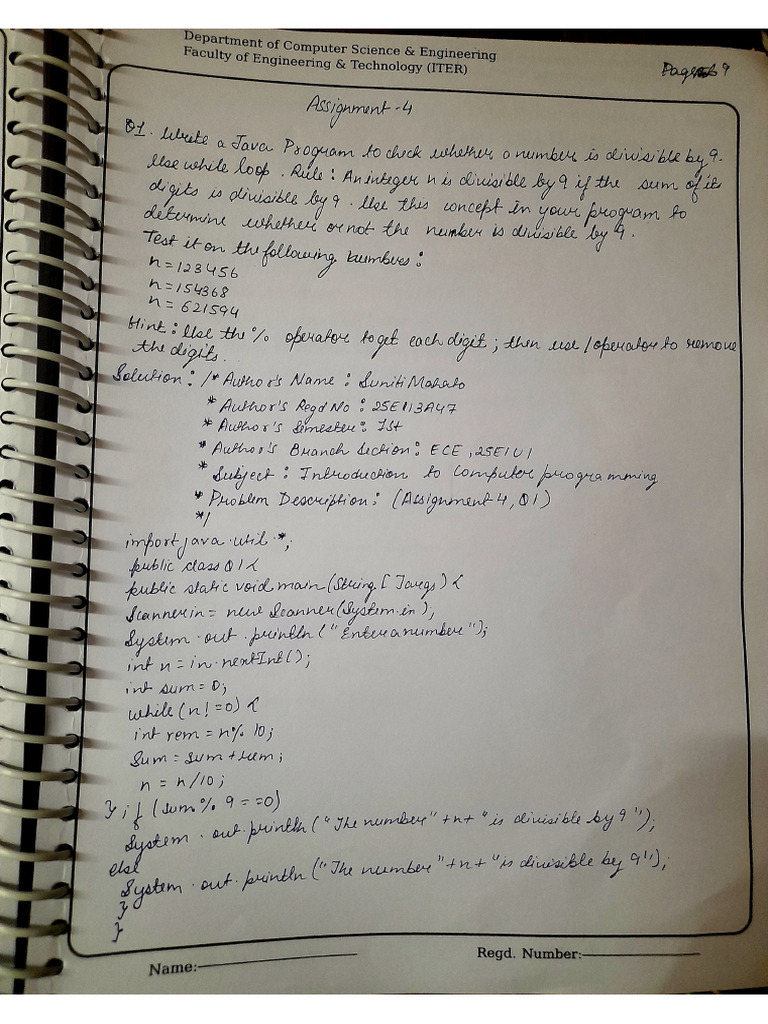 Department of Computer Science & Engineering
Faculty of Engineering & Technology (ITER)
Assignment-4
Q1. Write a Java Program to check whether a number is divisible by 9.
Use while loop. Rule: An integer n is divisible by 9 if the sum of its
digits is divisible by 9. Use this concept in your program to
determine whether or not the number is divisible by 9.
Test it on the following numbers:
n=123456
n=154368
n=621594
Hint: Use the % operator to get each digit; then use / operator to remove
the digits.
Solution: /* Author's Name: Suniti Mahato
* Author's Regd No: 25E113A47
* Author's Semester: Ist
* Author's Branch Section: ECE, 25E1U1
* Subject: Introduction to Computer programming
* Problem Description: (Assignment 4, Q1)
*/
import java.util.*;
public class Q1{
public static void main(String[]args){
Scanner in = new Scanner(System.in);
System.out.println("Enter a number");
int n = in.nextInt();
int sum=0;
while(n!=0){
int rem = n%10;
Sum=sum+rem;
n = n/10;
} if (sum % 9 ==0)
System.out.println("The number"+n+"is divisible by 9");
else
System.out.println("The number"+n+"is divisible by 9");
}
}
Name:
Regd. Number: